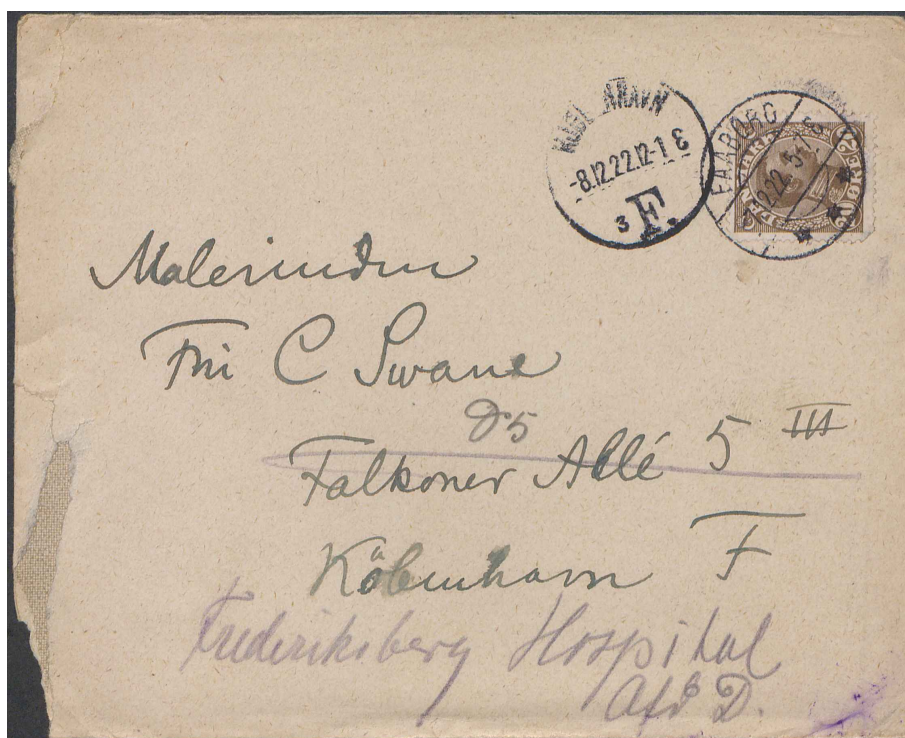 KØBENHAVN
-8.12.22.12-1 E
3 F.
FAABORG
7.12.22. 5-7 E
Malerinden
Fru C Swane
D5
Falkoner Allé 5 III
København F
Frederiksberg Hospital
Afd D.